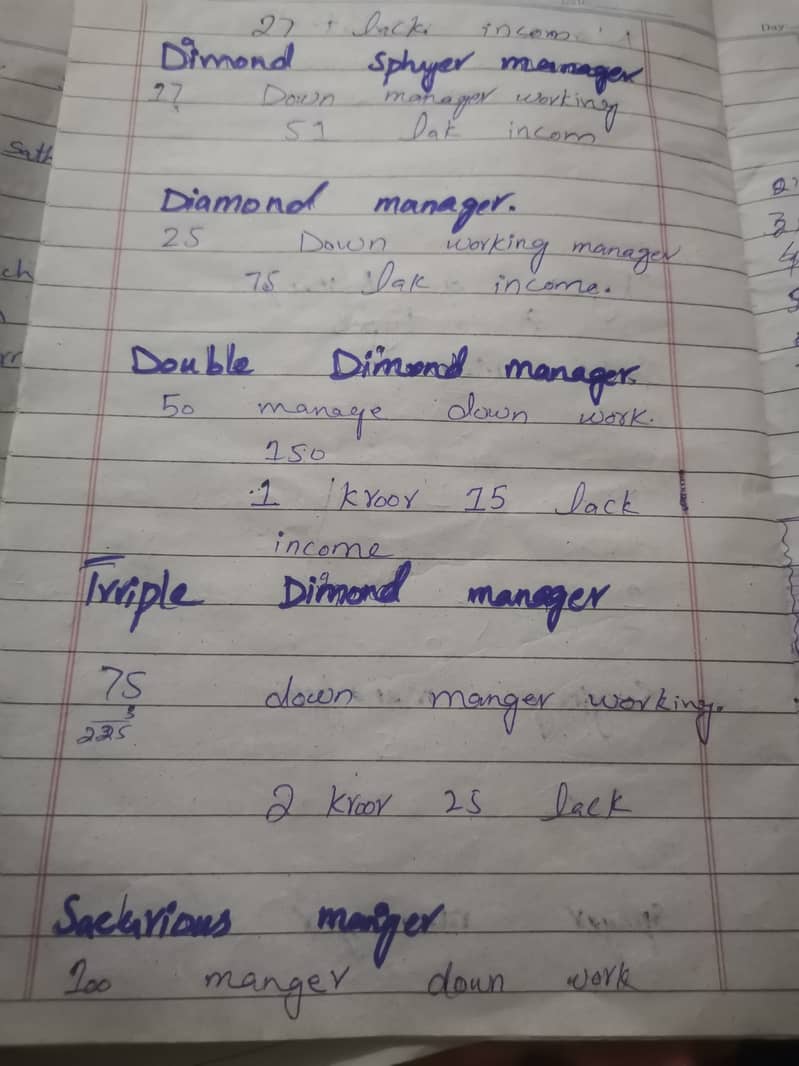 27 lack incom
Dimond Sphyer manager
Down manager working
51 lak incom
Diamond manager.
25 Down working manager
75 lak income.
Double Dimond manager.
50 manage down work.
150
1 kroor 15 lack
income
Trriple Dimond manager
75 down manger working.
3
225
2 kroor 25 lack
manger
100 manger down work